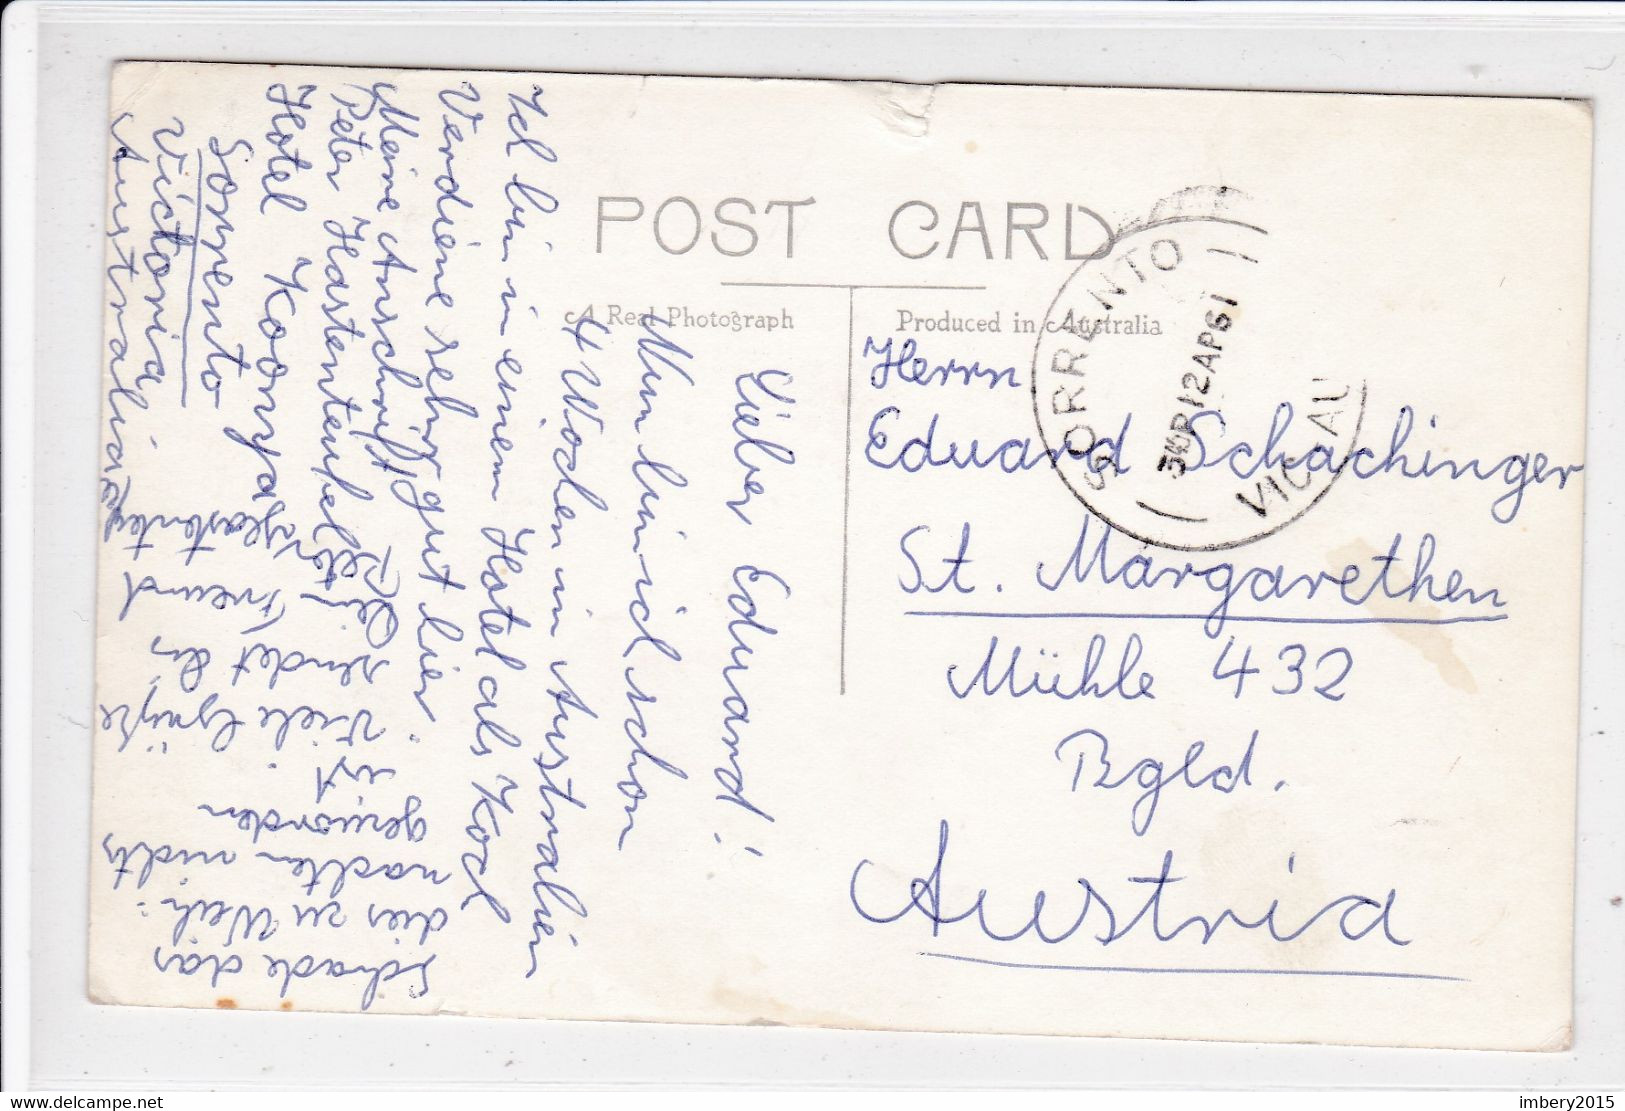 POST CARD
A Real Photograph
Produced in Australia
SORRENTO
3 12AP61
VIC-AU
Herrn
Eduard Schachinger
St. Margarethen
Mühle 432
Bgld.
Austria
Lieber Eduard!
Nun bin ich schon
4 Wochen in Australien
Ich bin in einem Hotel als Koch
Verdiene sehr gut hier.
Meine Anschrift
Peter Hastenteufel
Hotel Koonya
Sorrento
Victoria
Australia
Schade das
dies zu Weih=
nachten nichts
geworden
ist
Viele Grüße
sendet dir
Dein Freund
Peter Hastenteufel
www.delcampe.net
imbery2015